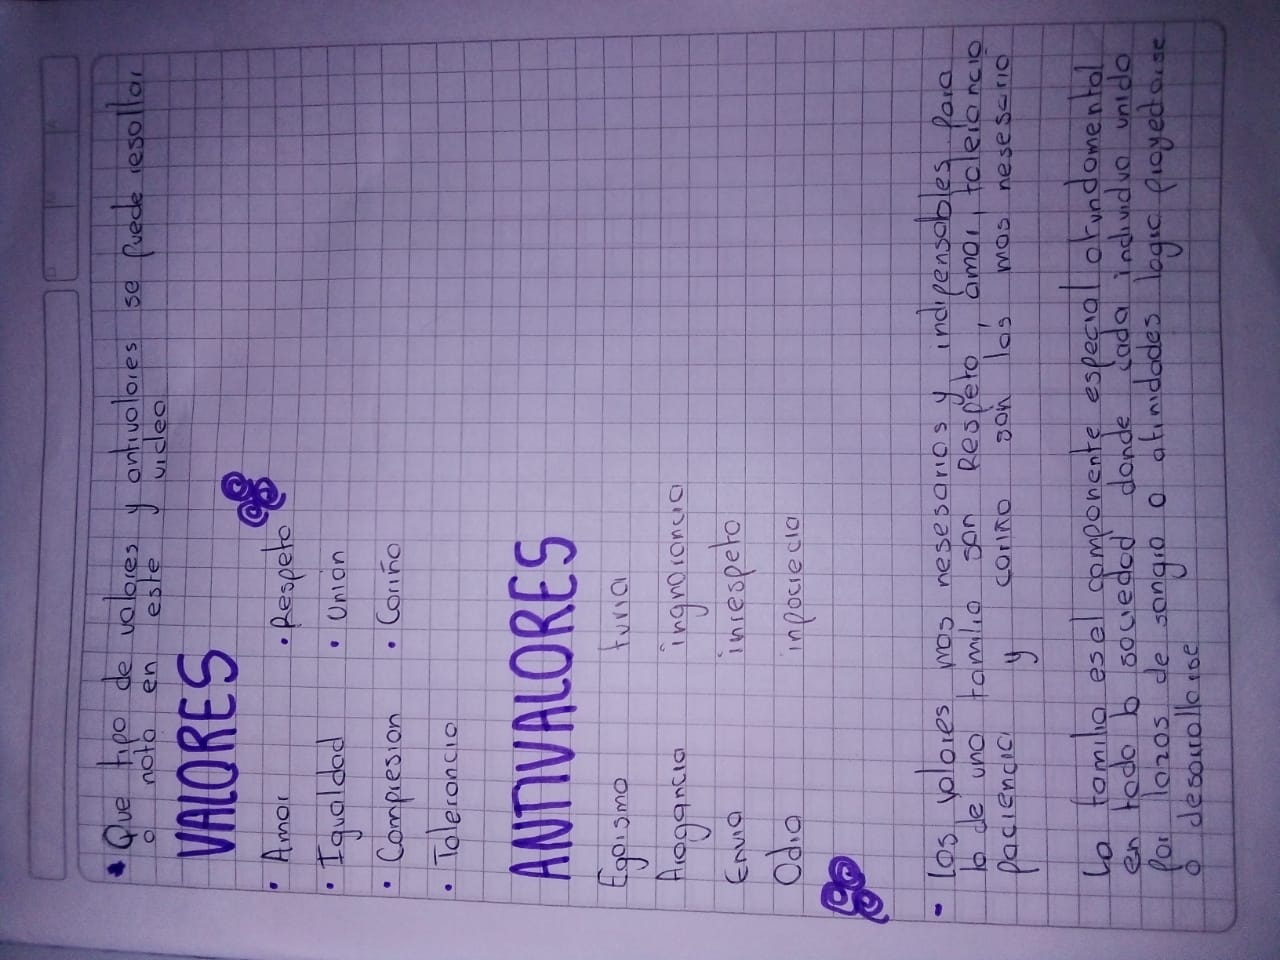 Que tipo de valores y antivalores se puede resaltar
o nota en este video
VALORES
• Amor • Respeto
• Igualdad • Union
• Compresion • Cariño
• Tolerancia
ANTIVALORES
Egoismo furia
Arogancia ingnorancia
Envia irrespeto
Odio inpocrecia
• los valores mas nesesarios y indipensables para
la de una familia son Respeto, amor, tolerancia
paciencia y cariño són los mas nesesario
La familia es el componente especial o fundamental
en toda la sociedad donde cada individuo unido
por lazos de sangre o afinidades logic proyedarse
o desarrollarse